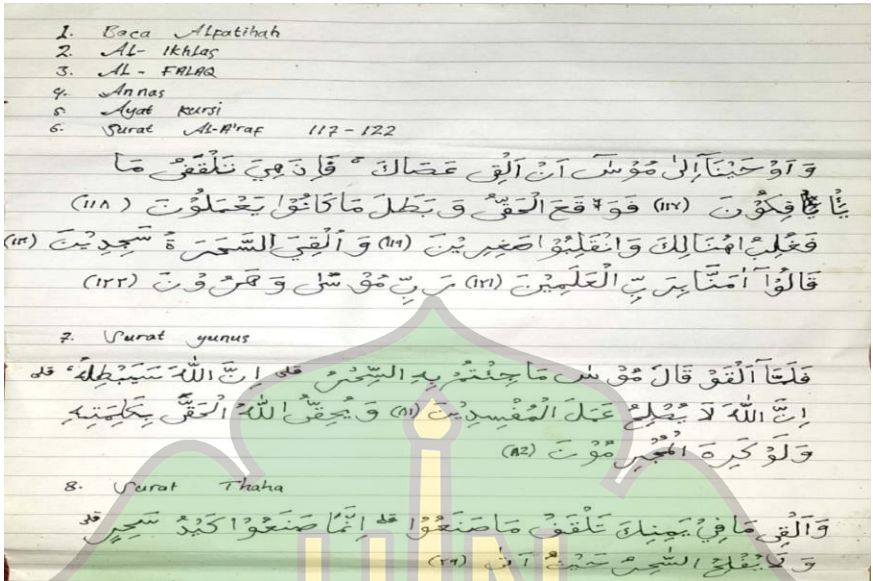 1. Baca Alpatihah
2. AL- Ikhlas
3. AL - FALAQ
4. Annas
5. Ayat Kursi
6. Surat AL-A'raf 117-122
وَاَوْحَيْنَآ اِلٰى مُوْسٰٓ اَنْ اَلْقِ عَصَاكَ ۚ فَاِذَ هِيَ تَلْقَفُ مَا
يَأْفِكُوْنَ (١١٧) فَوَقَعَ الْحَقُّ وَبَطَلَ مَاكَانُوْا يَعْمَلُوْنَ (١١٨)
فَغُلِبُ اهُنَالِكَ وَانْقَلِبُوْا صٰغِرِيْنَ (١١٩) وَ اُلْقِيَ السَّحَرَةُ سٰجِدِيْنَ (١٢٠)
قَالُوْٓا اٰمَنَّا بِرَبِّ الْعٰلَمِيْنَ (١٢١) رَبِّ مُوْسٰى وَهٰرُوْنَ (١٢٢)
7. Surat yunus
فَلَمَّآ اَلْقَوْ قَالَ مُوْسٰى مَاجِئْتُمْ بِهِ السِّحْرُ ۗ اِنَّ اللّٰهَ سَيُبْطِلُهٗ ۗ
اِنَّ اللّٰهَ لَا يُصْلِحُ عَمَلَ الْمُفْسِدِيْنَ (٨١) وَيُحِقُّ اللّٰهُ الْحَقَّ بِكَلِمٰتِهٖ
وَلَوْ كَرِهَ الْمُجْرِمُوْنَ (٨٢)
8. Surat Thaha
وَاَلْقِ مَافِيْ يَمِيْنِكَ تَلْقَفْ مَاصَنَعُوْا ۗ اِنَّمَا صَنَعُوْا كَيْدُ سٰحِرٍ ۗ
وَلَا يُفْلِحُ السّٰحِرُ حَيْثُ اَتٰى (٦٩)
UIN